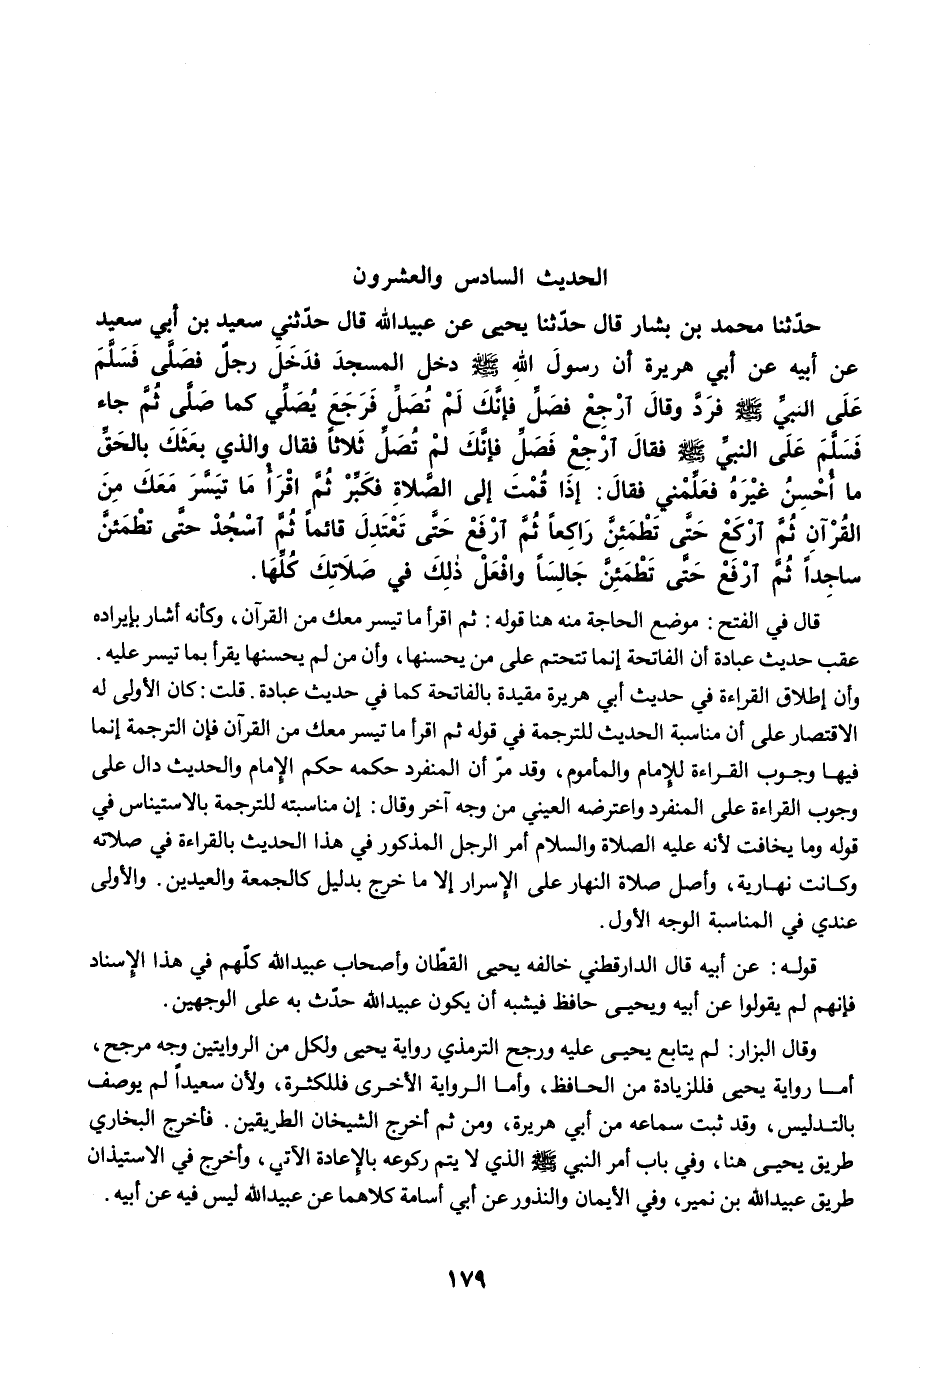 الحديث السادس والعشرون
حدّثنا محمد بن بشار قال حدّثنا يحيى عن عبيدالله قال حدّثني سعيد بن أبي سعيد
عن أبيه عن أبي هريرة أن رسولَ اللهِ ﷺ دخل المسجدَ فدَخَلَ رجلٌ فصَلَّى فَسَلَّمَ
عَلَى النبيِّ ﷺ فرَدَّ وقالَ ٱرْجِعْ فصَلِّ فإنَّكَ لَمْ تُصَلِّ فَرَجَعَ يُصَلِّي كما صَلَّى ثُمَّ جاء
فَسَلَّمَ عَلَى النبيِّ ﷺ فقالَ ٱرْجِعْ فَصَلِّ فإنَّكَ لمْ تُصَلِّ ثَلاثاً فقال والذي بعَثَكَ بالحَقِّ
ما أُحْسِنُ غيْرَهُ فعَلِّمْني فقالَ: إذَا قُمْتَ إلى الصَّلاةِ فكَبِّرْ ثُمَّ اقْرَأْ مَا تيَسَّرَ مَعَكَ مِنَ
القُرْآنِ ثُمَّ ٱرْكَعْ حَتَّى تَطْمَئِنَّ رَاكِعاً ثُمَّ ٱرْفَعْ حَتَّى تَعْتَدِلَ قائماً ثُمَّ ٱسْجُدْ حتَّى تطْمَئنَّ
ساجِداً ثُمَّ ٱرْفَعْ حَتَّى تَطْمَئِنَّ جَالِسَاً وافْعَلْ ذٰلِكَ في صَلَاتِكَ كُلِّهَا.
قال في الفتح: موضع الحاجة منه هنا قوله: ثم اقرأ ما تيسر معك من القرآن، وكأنه أشار بإيراده
عقب حديث عبادة أن الفاتحة إنما تتحتم على من يحسنها، وأن من لم يحسنها يقرأ بما تيسر عليه.
وأن إطلاق القراءة في حديث أبي هريرة مقيدة بالفاتحة كما في حديث عبادة. قلت: كان الأولى له
الاقتصار على أن مناسبة الحديث للترجمة في قوله ثم اقرأ ما تيسر معك من القرآن فإن الترجمة إنما
فيها وجوب القراءة للإمام والمأموم، وقد مرّ أن المنفرد حكمه حكم الإمام والحديث دال على
وجوب القراءة على المنفرد واعترضه العيني من وجه آخر وقال: إن مناسبته للترجمة بالاستيناس في
قوله وما يخافت لأنه عليه الصلاة والسلام أمر الرجل المذكور في هذا الحديث بالقراءة في صلاته
وكانت نهارية، وأصل صلاة النهار على الإسرار إلا ما خرج بدليل كالجمعة والعيدين. والأولى
عندي في المناسبة الوجه الأول.
قوله: عن أبيه قال الدارقطني خالفه يحيى القطّان وأصحاب عبيدالله كلّهم في هذا الإسناد
فإنهم لم يقولوا عن أبيه ويحيى حافظ فيشبه أن يكون عبيدالله حدّث به على الوجهين.
وقال البزار: لم يتابع يحيى عليه ورجح الترمذي رواية يحيى ولكل من الروايتين وجه مرجح،
أما رواية يحيى فللزيادة من الحافظ، وأما الرواية الأخرى فللكثرة، ولأن سعيداً لم يوصف
بالتدليس، وقد ثبت سماعه من أبي هريرة، ومن ثم أخرج الشيخان الطريقين. فأخرج البخاري
طريق يحيى هنا، وفي باب أمر النبي ﷺ الذي لا يتم ركوعه بالإعادة الآتي، وأخرج في الاستيذان
طريق عبيدالله بن نمير، وفي الأيمان والنذور عن أبي أسامة كلاهما عن عبيدالله ليس فيه عن أبيه.
١٧٩